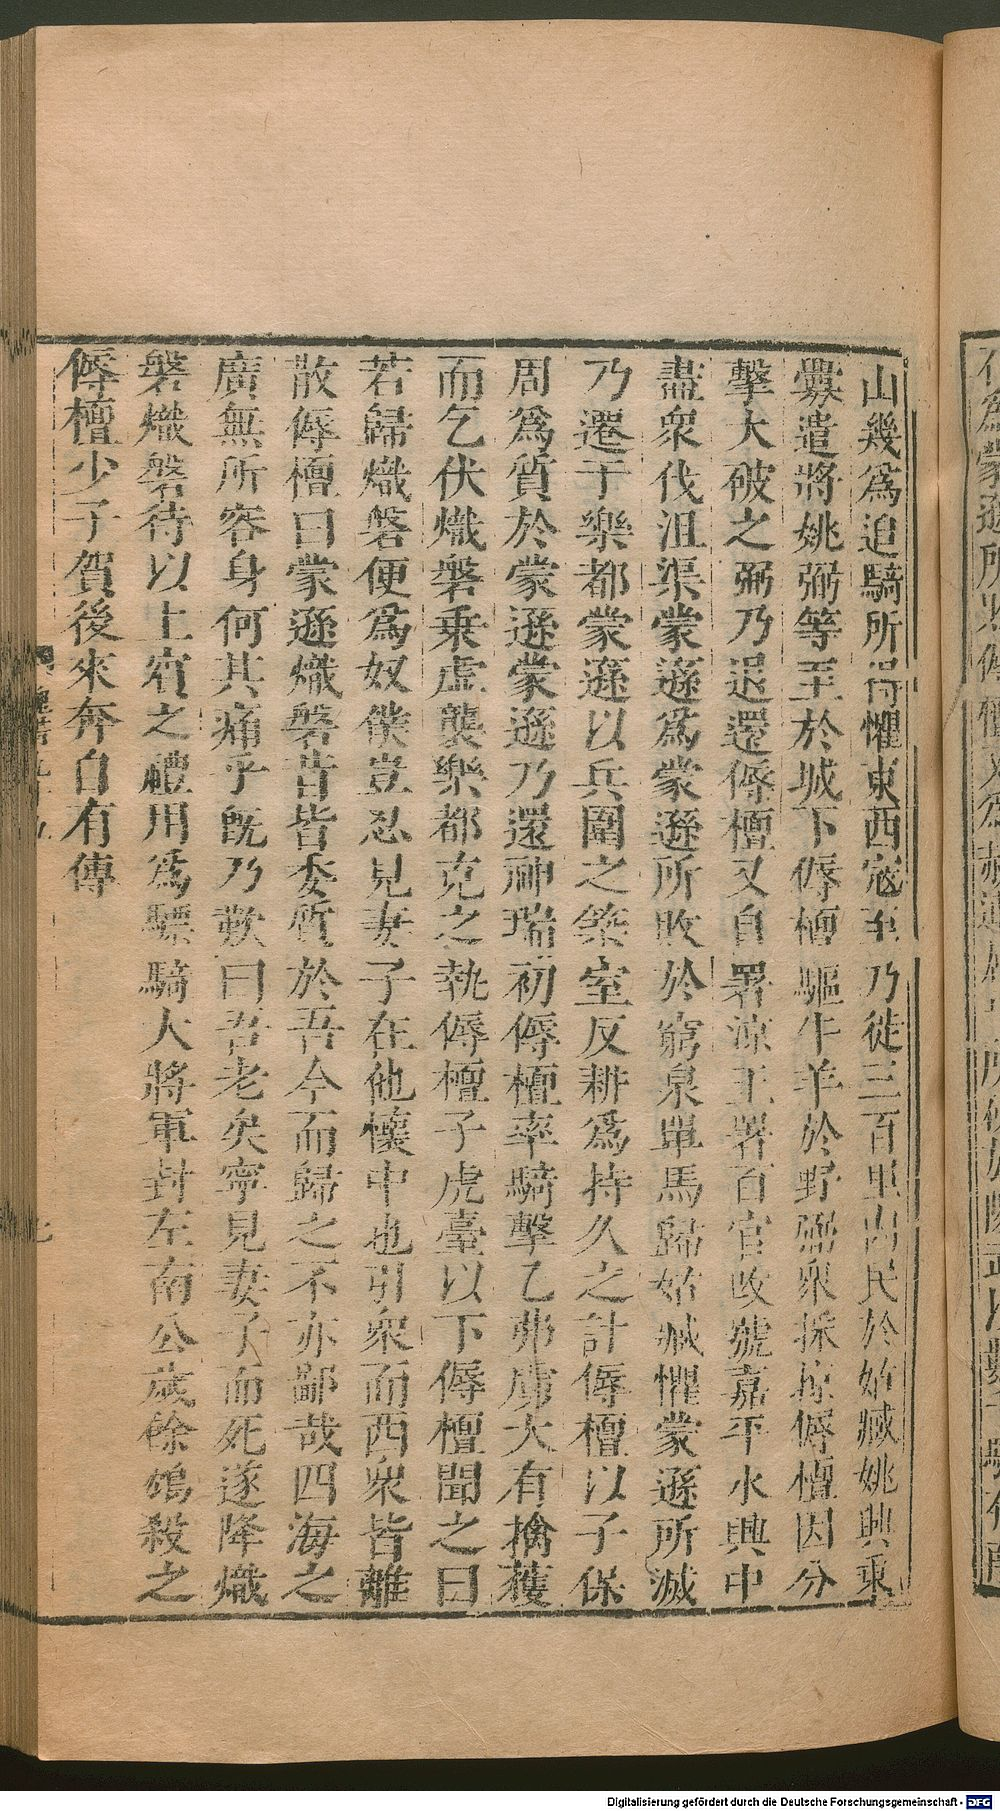 山幾為追騎所得懼東西寇至乃徙三百里內民於姑臧姚興乘
釁遣將姚弼等至於城下傉檀驅牛羊於野弼衆採掠傉檀因分
擊大破之弼乃退還傉檀又自署涼王署百官改號嘉平永興中
盡衆伐沮渠蒙遜為蒙遜所敗於窮泉單馬歸姑臧懼蒙遜所滅
乃遷于樂都蒙遜以兵圍之築室反耕為持久之計傉檀以子保
周為質於蒙遜蒙遜乃還神瑞初傉檀率騎擊乙弗虜大有擒獲
而乞伏熾磐乘虛襲樂都克之執傉檀子虎臺以下傉檀聞之曰
若歸熾磐便為奴僕豈忍見妻子在他懷中也引衆而西衆皆離
散傉檀曰蒙遜熾磐昔皆委質於吾今而歸之不亦鄙哉四海之
廣無所容身何其痛乎旣乃歎曰吾老矣寧見妻子而死遂降熾
磐熾磐待以上賓之禮用為驃騎大將軍封左南公歲餘鴆殺之
傉檀少子賀後來奔自有傳
Digitalisierung gefördert durch die Deutsche Forschungsgemeinschaft - DFG